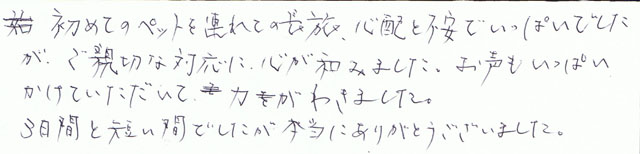 初めてのペットを連れての長旅、心配と不安でいっぱいでした
が、ご親切な対応に、心が和みました。お声もいっぱい
かけていただいて、力がわきました。
3日間と短い間でしたが本当にありがとうございました。